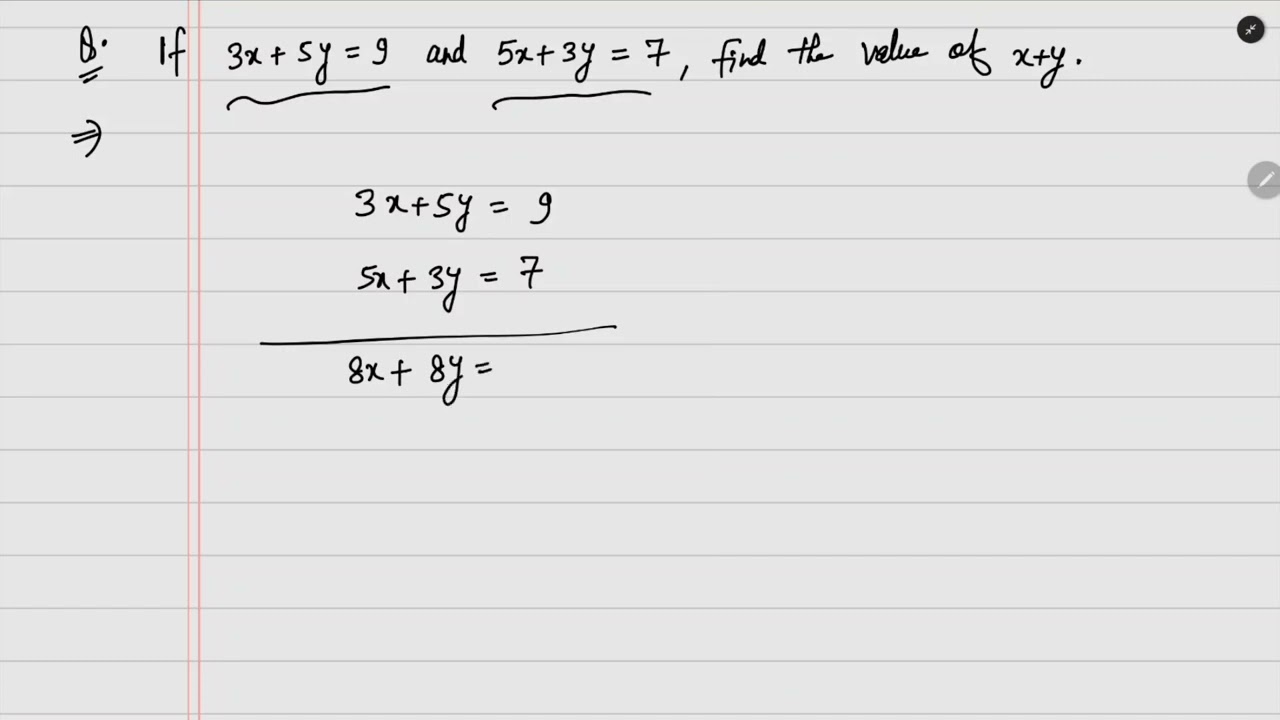 Q. If 3x + 5y = 9 and 5x + 3y = 7, find the value of x+y.
⇒
3x + 5y = 9
5x + 3y = 7
8x + 8y =